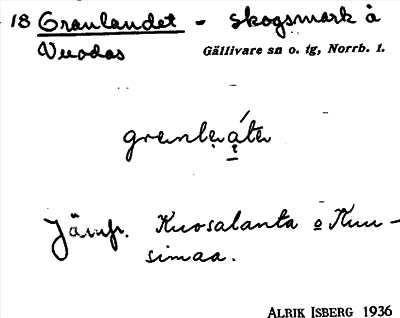 18 Granlandet - skogsmark å
Vuodas Gällivare sn o. tg, Norrb. l.
Jämfr. Kuosalanta o Kuu-
simaa.
ALRIK ISBERG 1936